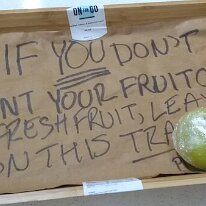 ON THE GO
IF YOU DON'T
NT YOUR FRUIT O
FRESH FRUIT, LEAV
ON THIS TRA
P